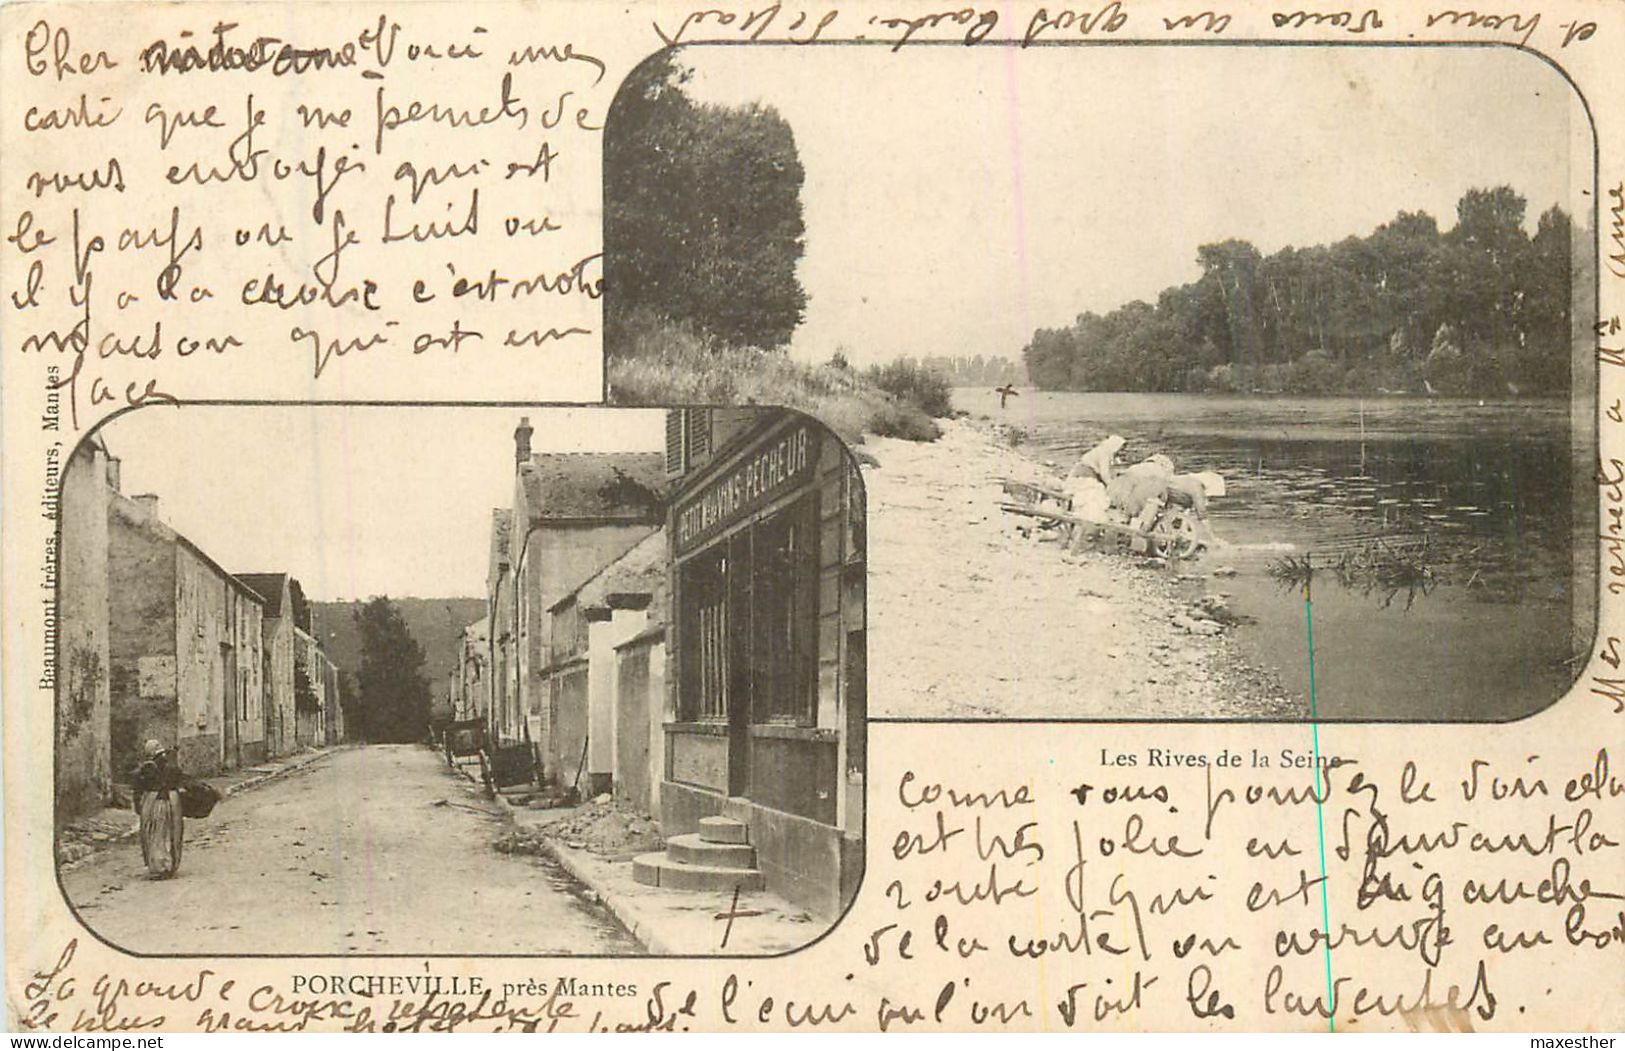 Cher Voici une
carte que je me permets de
vous envoyer qui est
le pays ou je suis ou
il y a la croix c'est notre
maison qui est en
face
et pour vous un gros
PETIT AUX VINS PÊCHEUR
Beaumont frères, éditeurs, Mantes
Mes respects a Mme
Les Rives de la Seine
comme vous pouvez le voir cela
est très jolie en suivant la
route qui est gauche
de la carte on arrive au bord
de l'eau ou l'on voit les laveuses.
PORCHEVILLE, près Mantes
La grande croix represente
le plus grand hotel du pays.
maxesther